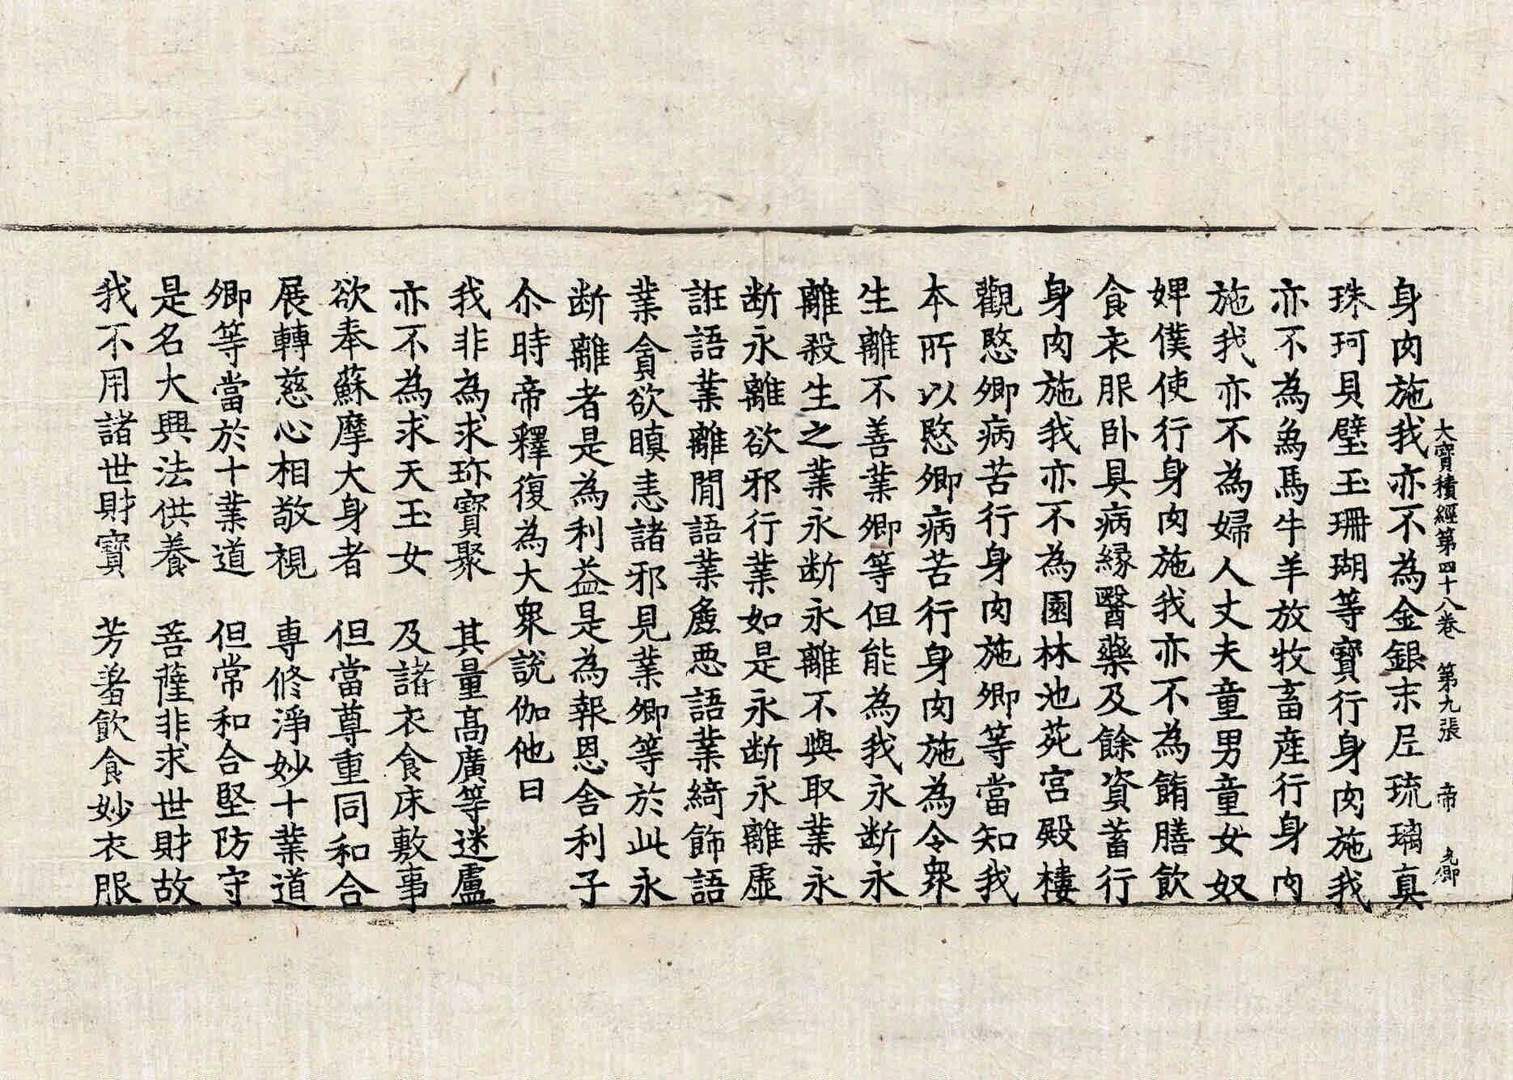 大寳積經第四十八卷　第九張　帝
身肉施我亦不為金銀末尼琉璃真
珠珂貝璧玉珊瑚等寳行身肉施我
亦不為象馬牛羊放牧畜産行身肉
施我亦不為婦人丈夫童男童女奴
婢僕使行身肉施我亦不為餚膳飲
食衣服卧具病縁醫藥及餘資蓄行
身肉施我亦不為園林池苑宫殿樓
觀愍卿病苦行身肉施卿等當知我
本所以愍卿病苦行身肉施為令衆
生離不善業卿等但能為我永断永
離殺生之業永断永離不與取業永
断永離欲邪行業如是永断永離虚
誑語業離間語業麁悪語業綺飾語
業貪欲瞋恚諸邪見業卿等於此永
断離者是為利益是為報恩舎利子
尒時帝釋復為大衆說伽他曰
我非為求珎寳聚　其量髙廣等迷盧
亦不為求天玉女　及諸衣食床敷事
欲奉蘇摩大身者　但當尊重同和合
展轉慈心相敬視　専修淨妙十業道
卿等當於十業道　但常和合堅防守
是名大興法供養　菩薩非求世財故
我不用諸世財寳　芳羞飲食妙衣服